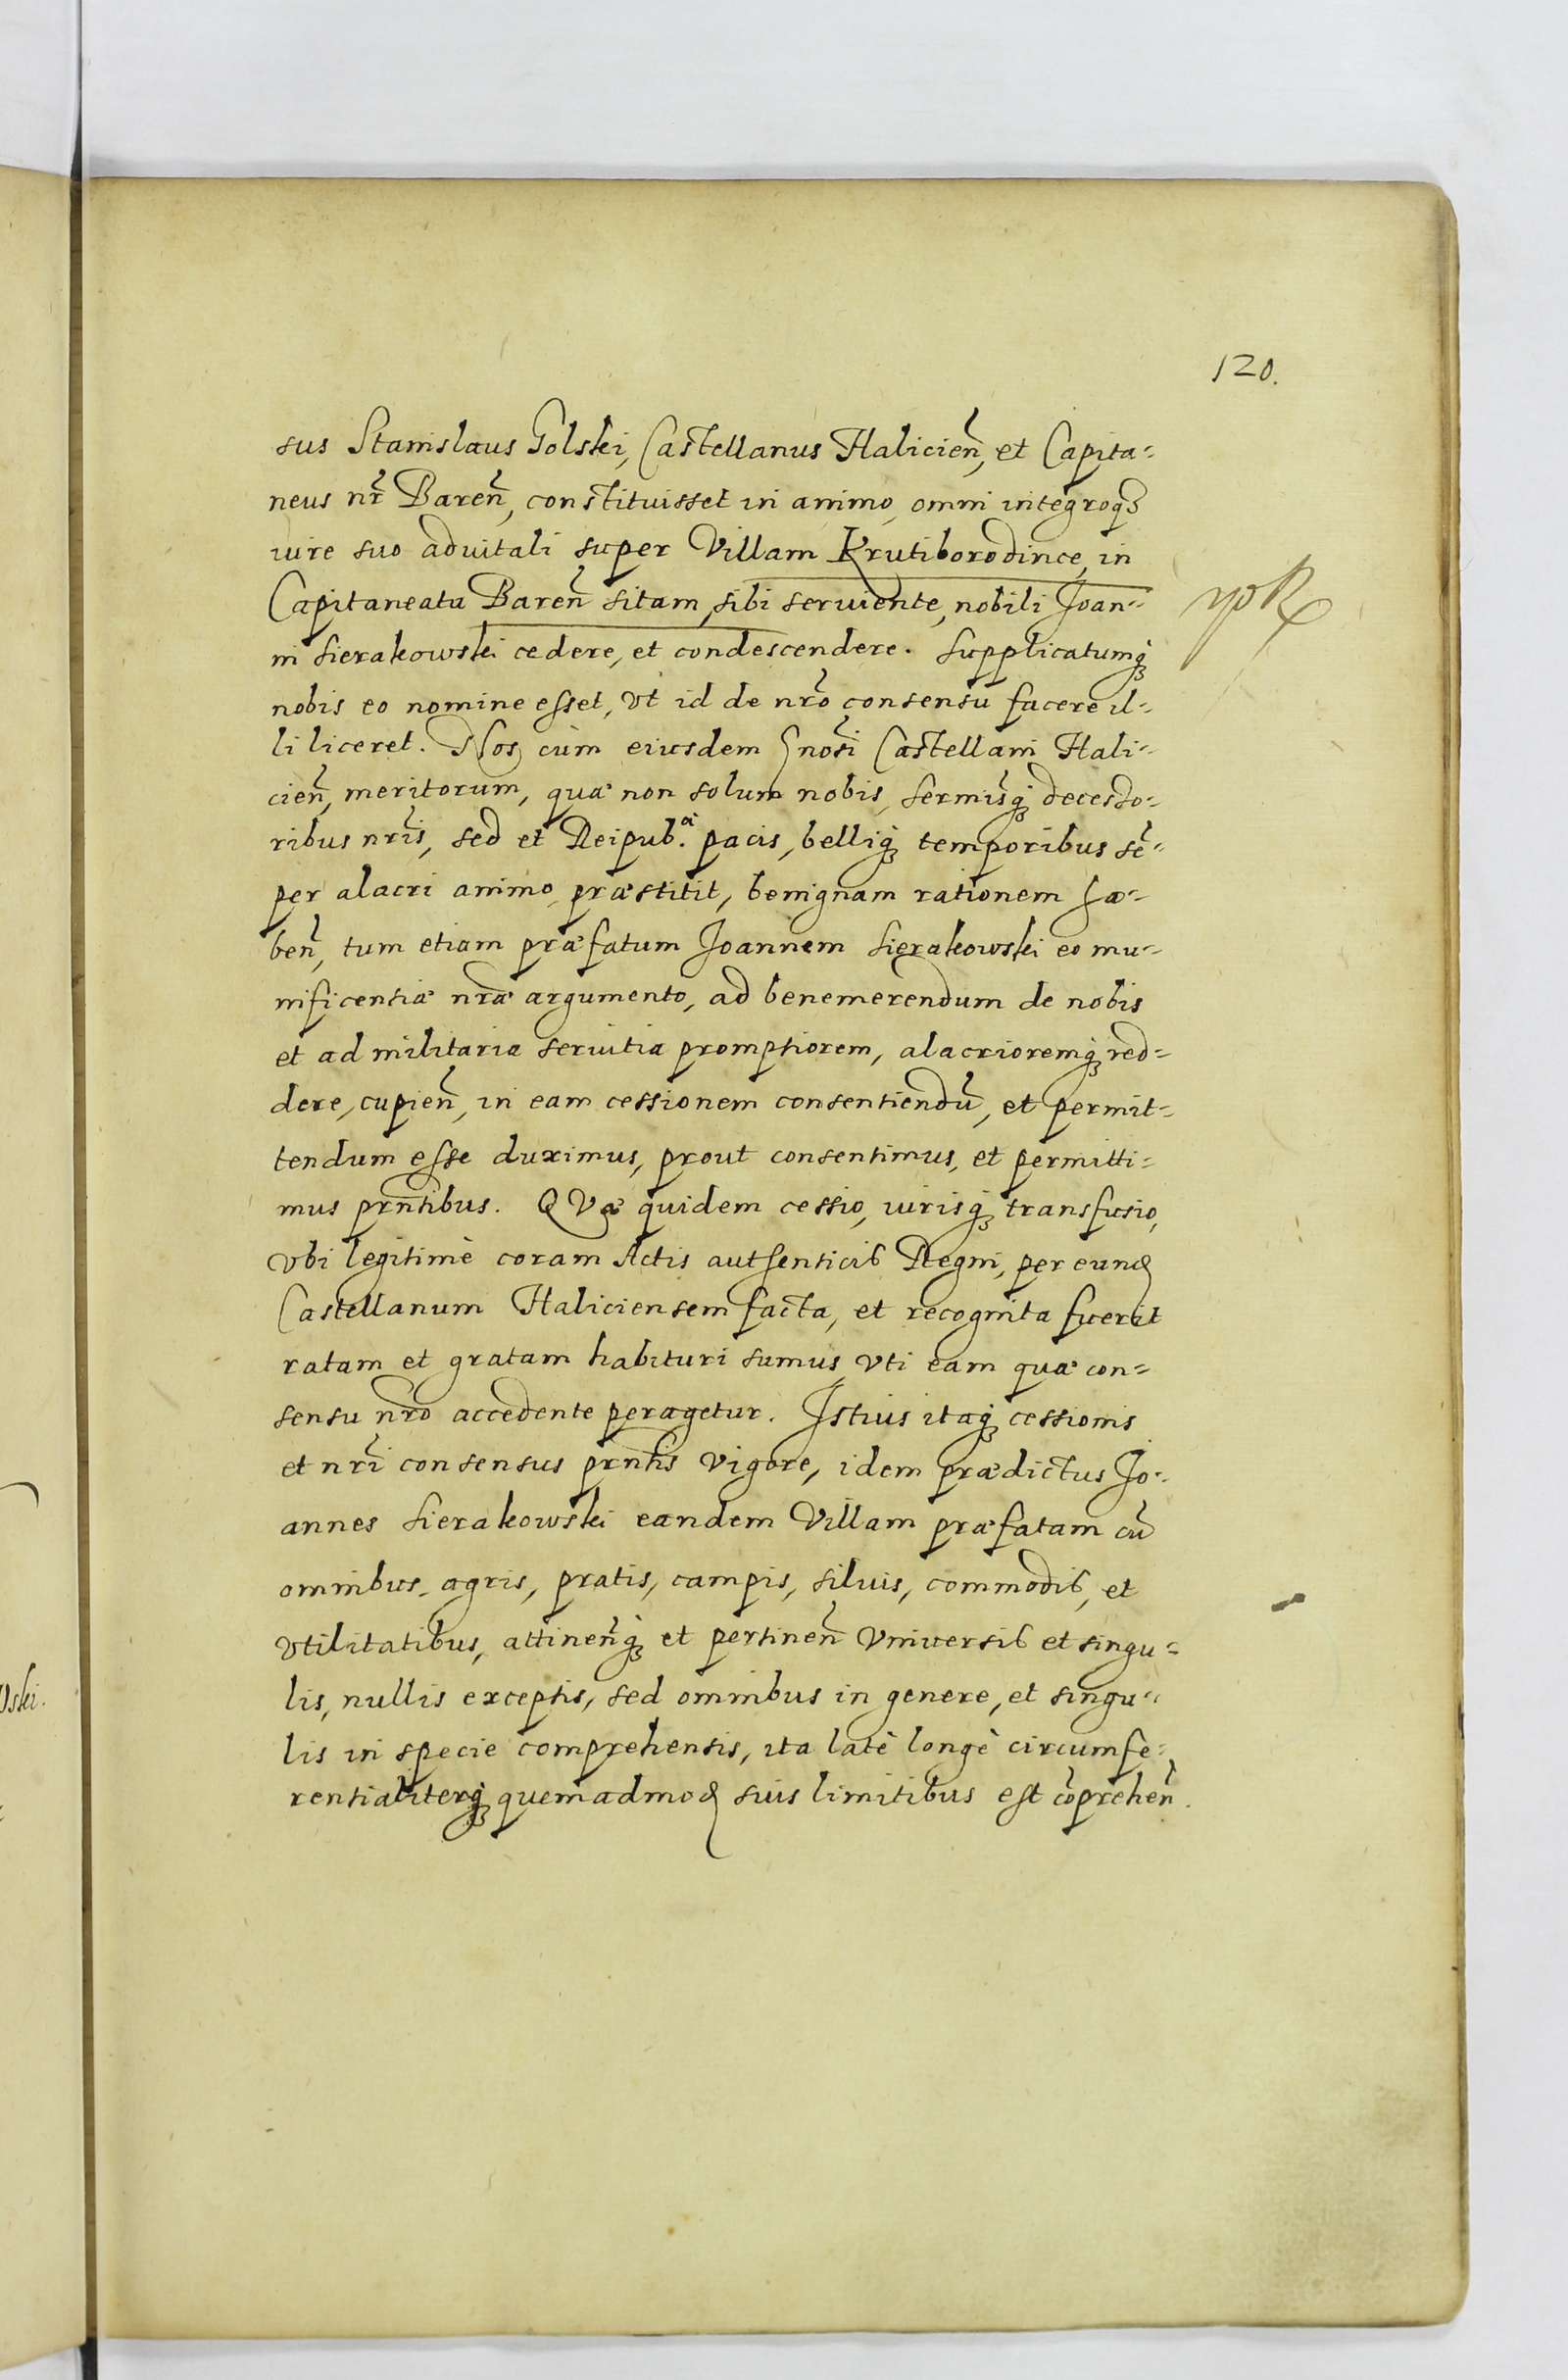 120.
sus Stanislaus Golski, Castellanus Halicien̄, et Capita=
neus nr̄ Baren̄, constituisset in animo, omni integroq́ꝫ
iure suo aduitali super Villam Krutiborodince, in
Capitaneatu Baren̄ sitam, sibi seruiente, nobili Joan=
ni Sierakowski cedere, et condescendere. Supplicatumq́ꝫ
nobis eo nomine esset, vt id de nr̄o consensu facere il=
li liceret. Nos cùm eiusdem Gnosi Castellani Hali=
cien̄, meritorum, quæ non solum nobis, Sermisq́ꝫ decesso=
ribus nr̄is, sed et Reipub.ᵃͤ pacis, belliq́ꝫ temporibus sē=
per alacri animo præstitit, benignam rationem ha=
ben̄, tum etiam præfatum Joannem Sierakowski eo mu=
nificentiæ nr̄æ argumento, ad benemerendum de nobis
et ad militaria seruitia promptiorem, alacrioremq́ꝫ red=
dere, cupien̄, in eam cessionem consentiendū, et permit=
tendum esse duximus, prout consentimus, et permitti=
mus prn̄tibus. QVæ quidem cessio, iurisq́ꝫ transfusio,
vbi legitimè coram Actis authenticis Regni, per eund
Castellanum Haliciensem facta, et recognita fuerit
ratam et gratam habituri sumus, vti eam quæ con=
sensu nr̄o accedente peragetur. Istius itaq́ꝫ cessionis
et nr̄i consensus prn̄tis vigore, idem prædictus Jo=
annes Sierakowski eandem Villam præfatam cū
omnibus, agris, pratis, campis, siluis, commodis, et
vtilitatibus, attinen̄q́ꝫ et pertinen̄ vniuersis et singu=
lis, nullis exceptis, sed omnibus in genere, et singu=
lis in specie comprehensis, ita latè longè circumfe=
rentialiterq́ꝫ quemadmod suis limitibus est cōprehen̄.